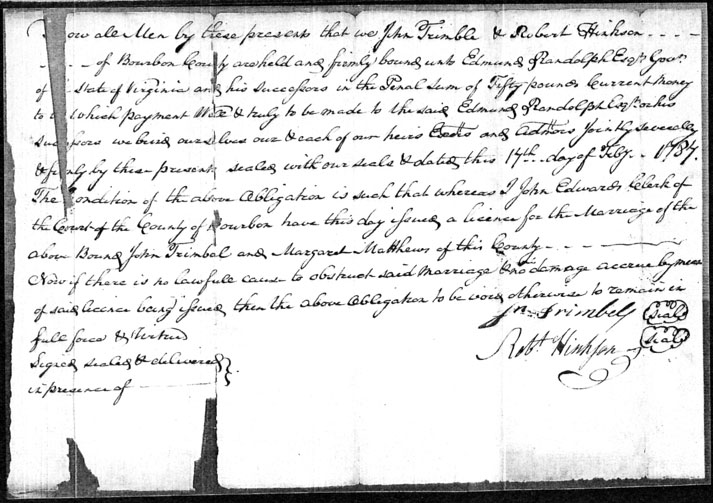 Know all Men by these presents that we John Trimble & Robert Hinkson
of Bourbon County are held and firmly bound unto Edmund Randolph Esqr. Govr.
of state of Virginia and his successors in the Penal sum of Fifty pounds Current money
to which payment Well & truly to be made to the said Edmund Randolph Esqr. or his
successors we bind ourselves our & each of our heirs Exors and Admors Jointly severally
& firmly by these presents sealed with our seals & dated this 17th. day of Feby. 1787.
The Condition of the above Obligation is such that whereas I John Edwards Clerk of
the Court of the County of Bourbon have this day issued a licence for the Marriage of the
above Bound John Trimbal and Margaret Matthews of this County
Now if there is no lawfull cause to obstruct said marriage & no damage accrue by means
of said licence being issued then the above Obligation to be void otherwise to remain in
full force & Virtue
Jn. Trimbel seal
Signed sealed & delivered
Robt. Hinkson seal
in presence of